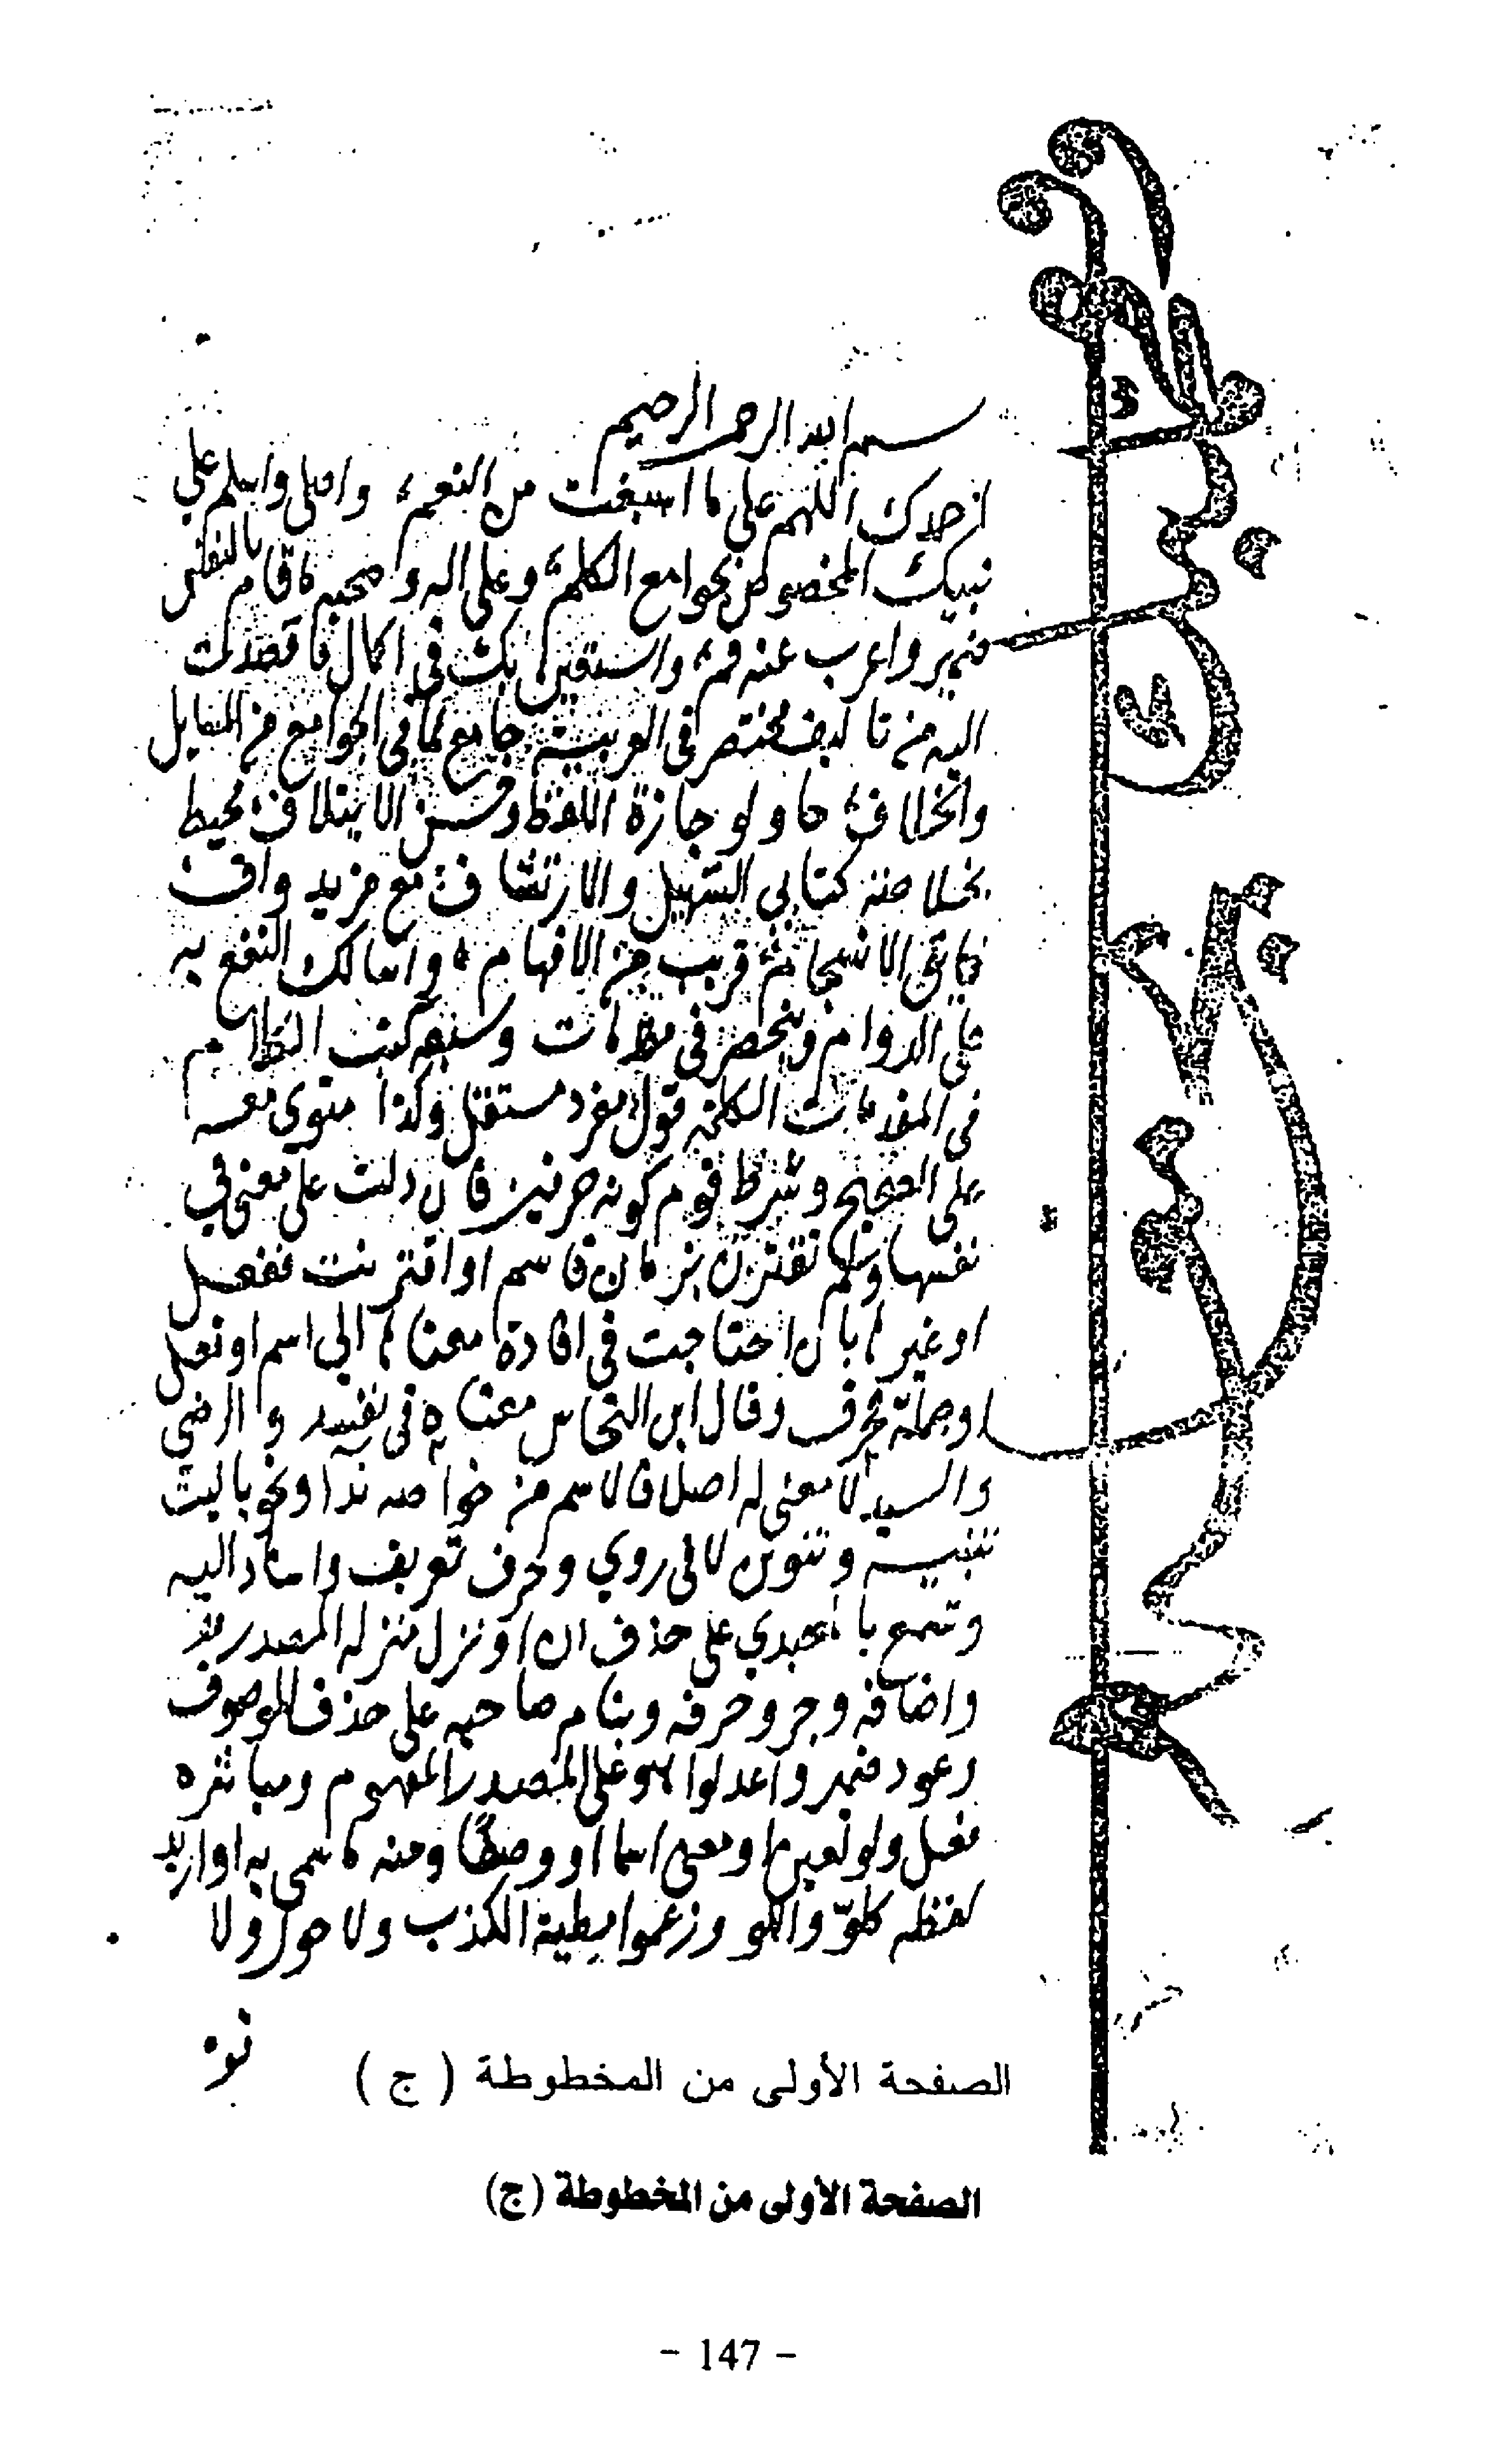 بسم الله الرحمن الرحيم
احمدك اللهم على ما اسبغت من النعم، واصلى واسلم على
نبيك المخصوص بجوامع الكلم، وعلى اله وصحبه ما قام بالنفس
ضمير واعرب عنه فم، واستعينك في اكمال ما قصدت
اليه من تاليف مختصر في العربية جامع لما في الجوامع من المسايل
والخلاف، حاو لوجازة اللفظ وحسن الايتلاف، محيط
بخلاصة كتابى التسهيل والارتشاف، مع مزيد واف
فايق الانسجام، قريب من الافهام، واسالك النفع به
على الدوام، وينحصر في مقدمات وسبعة كتب الكلام
في المقدمات الكلمة قول مفرد مستقل وكذا منوى معه
على الصحيح وشرط قوم كونه حرفين فان دلت على معنى في
نفسها ولم تقترن بزمان فاسم او اقترنت ففعل
او غيرها بان احتاجت في افادة معناها الى اسم او فعل
او جملة فحرف وقال ابن النحاس معناه في نفسه والرضي
والسيد لا معنى له اصلا فالاسم من خواصه ندا ونحو ياليت
تنبيه وتنوين لا في روي وحرف تعريف واسناد اليه
وتسمع بالمعيدي على حذف ان او نزل منزلة المصدر
واضافة وجر وحرفه وبنام صاحبه على حذف الموصوف
وعود ضمير واعدلوا هو على المصدر المفهوم ومباشرة
فعل ولو لعين او معنى اسما او وصفا ومنه ما سمى به او اريد
لفظه كلوّ واللو وزعموا مطية الكذب ولا حول ولا
الصفحة الأولى من المخطوطة ( ج )
الصفحة الأولى من المخطوطة (ج)
- 147 -